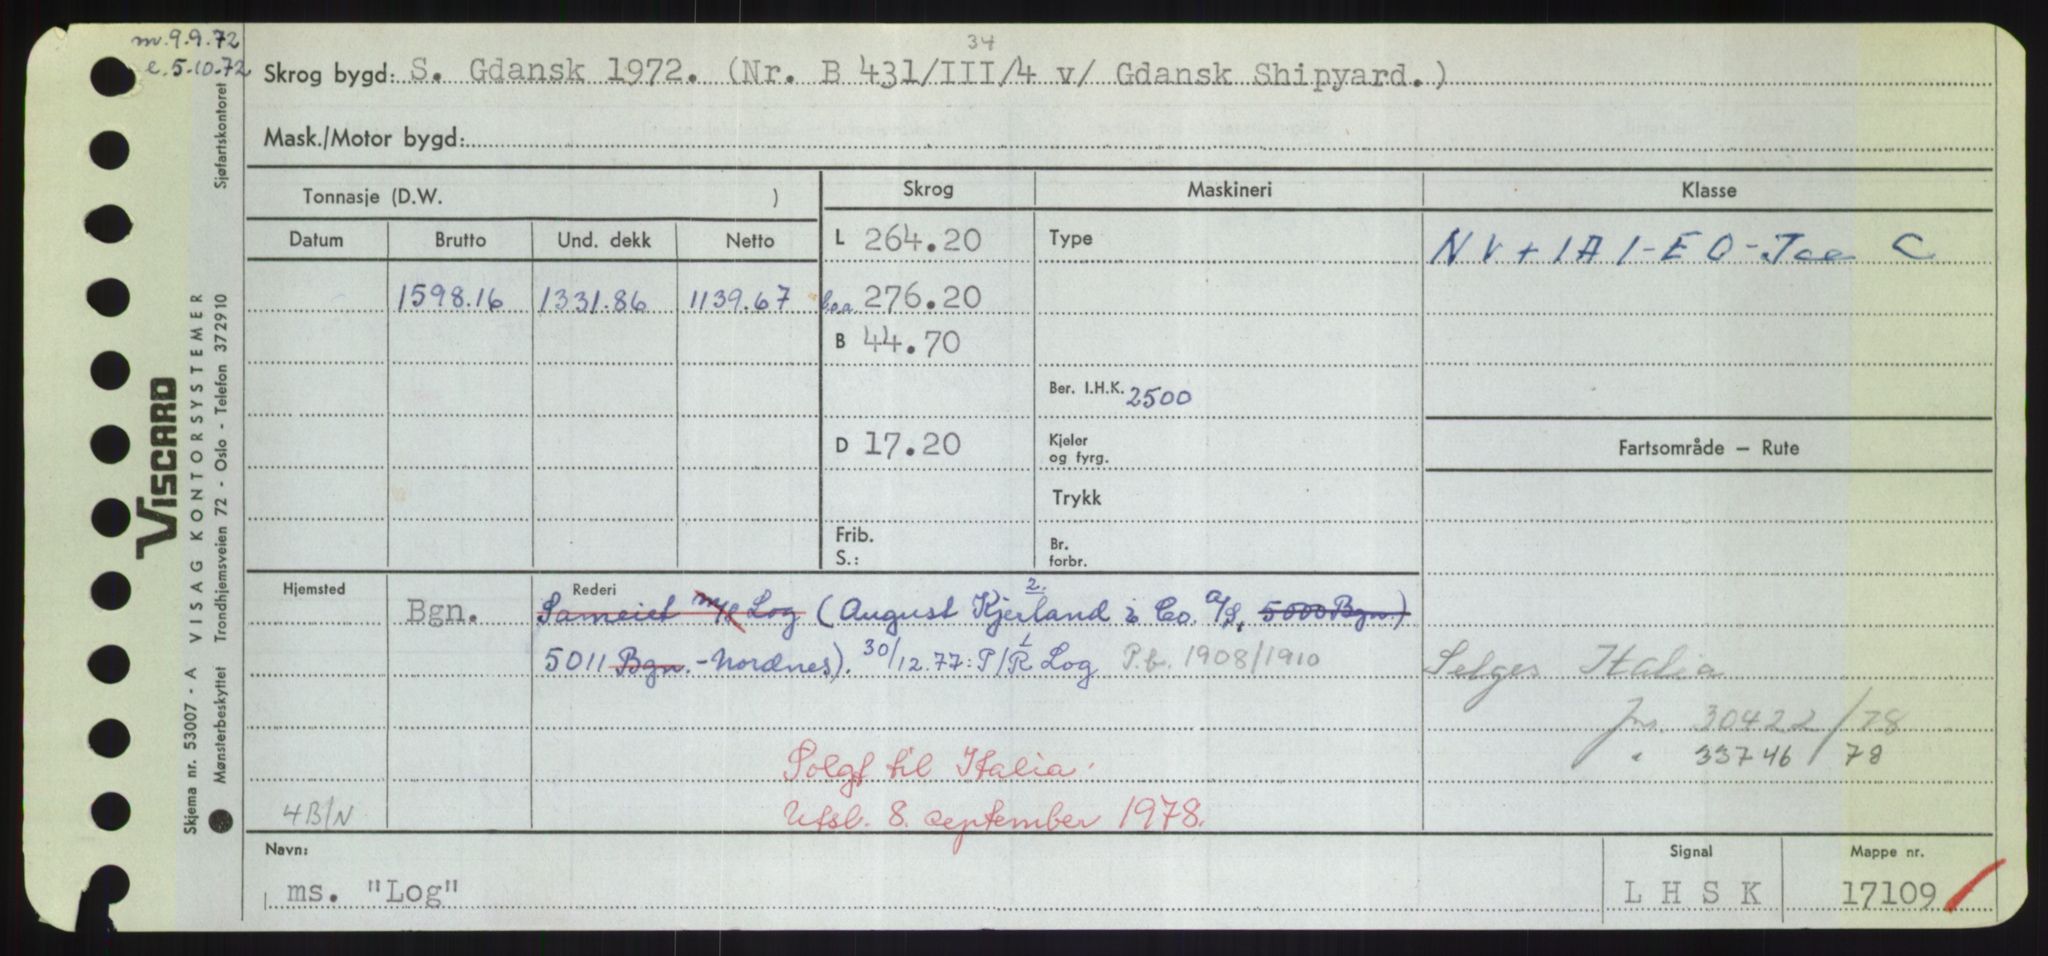 m. 9.9.72
e. 5.10.72
34
Skrog bygd: S. Gdansk 1972. (Nr. B 431/III/4 v/ Gdansk Shipyard.)
Mask./Motor bygd:
Tonnasje (D.W. )
Skrog
Maskineri
Klasse
Datum Brutto Und. dekk Netto
L 264.20
Type
NV + 1A1 - EO - Ice C
1598.16 1331.86 1139.67
Loa 276.20
B 44.70
Ber. I.H.K. 2500
D 17.20
Kjeler
og fyrg.
Fartsområde – Rute
Trykk
Frib.
S.:
Br.
forbr.
Hjemsted
Rederi
2.
Bgn. Sameiet m/s Log (August Kjerland & Co. A/S, 5000 Bgn)
5011 Bgn. - Nordnes). 30/12.77: P/R Log P.b. 1908/1910
Selges Italia
Jnr. 30422/78
" 33746/78
Solgt til Italia.
Utsl. 8. september 1978.
4B/N
Navn:
ms. "Log"
Signal
L H S K
Mappe nr.
17109
VISCARD
Skjema nr. 53007 - A VISAG KONTORSYSTEMER
Mønsterbeskyttet Trondhjemsveien 72 - Oslo - Telefon 372910 Sjøfartskontoret